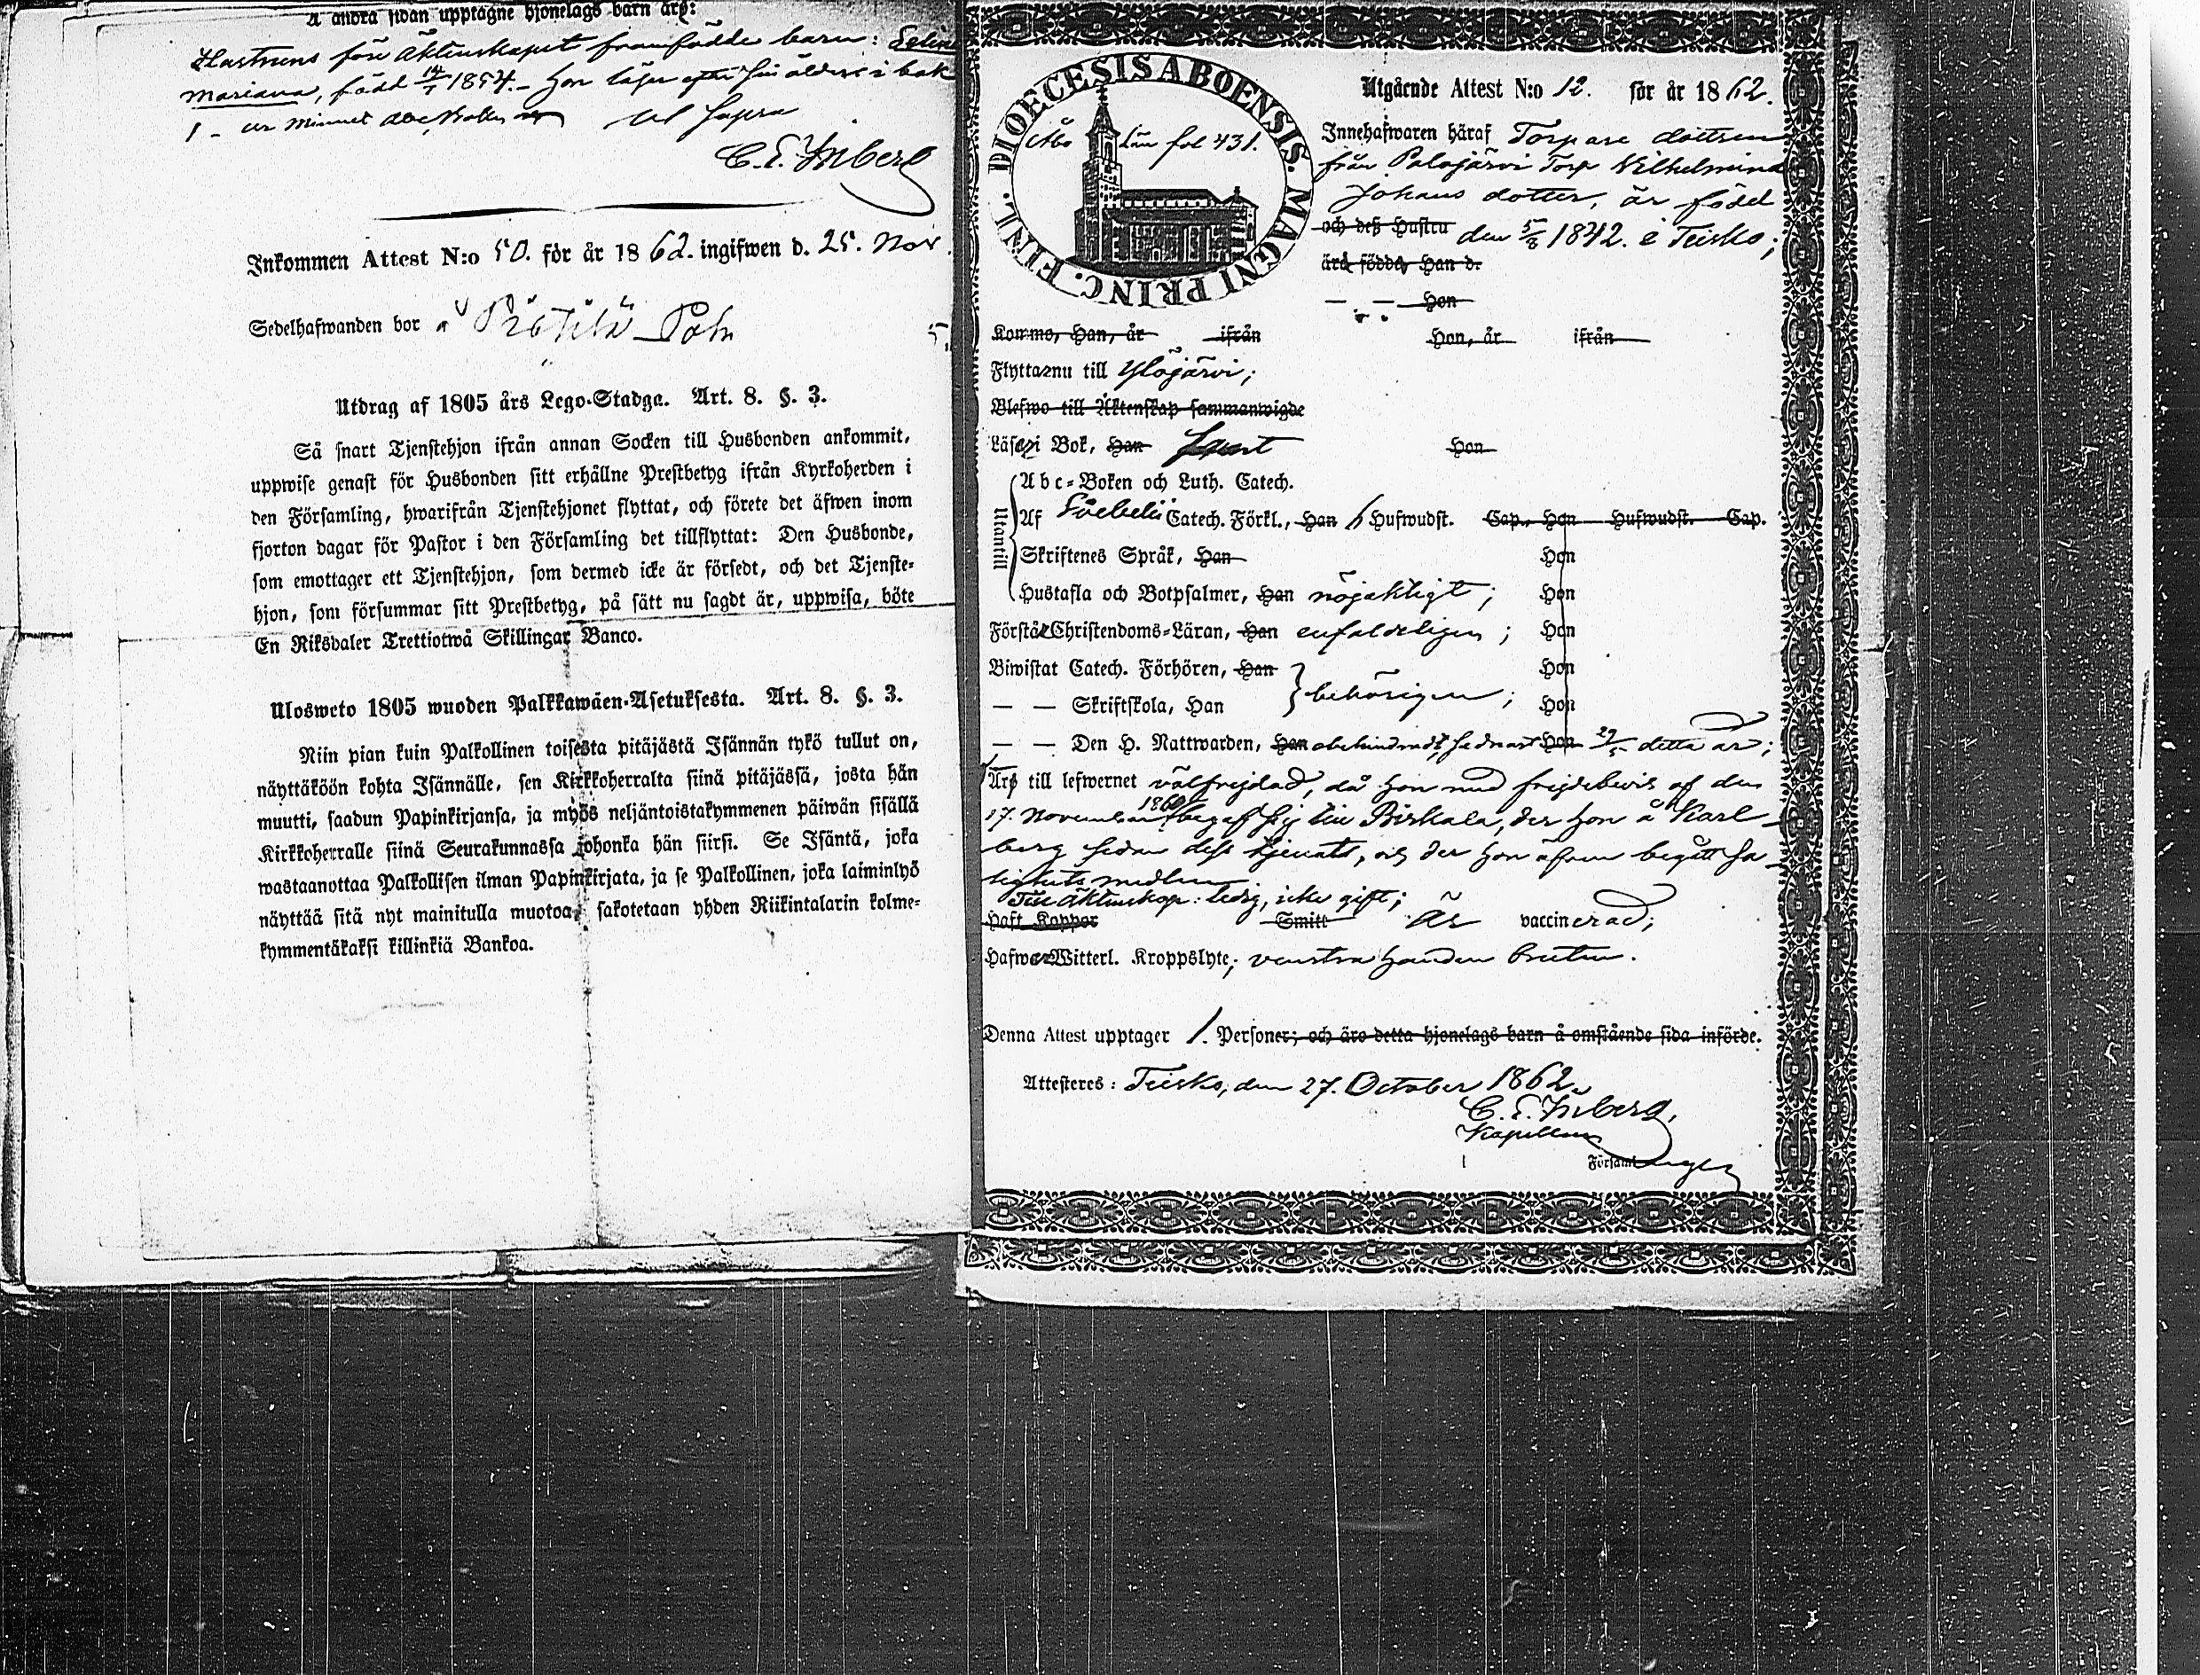 Å andra sidan upptagne hjonelags barn äro:
Hustruns före äktenskapet framfödde barn:
Mariana, född 14/7 1854. – hon läser efter sin ålder i bok
1 – ur minnet Abc Boken Ut supra
C. E. Inberg
Inkommen Attest N:o 50. för år 1862. ingifwen d. 25. Nov.
Sedelhafwanden bor å
Utdrag af 1805 års Lego-Stadga. Art. 8. §. 3.
Så snart Tjenstehjon ifrån annan Socken till Husbonden ankommit,
uppwise genast för Husbonden sitt erhållne Prestbetyg ifrån Kyrkoherden i
den Församling, hwarifrån Tjenstehjonet flyttat, och förete det äfwen inom
fjorton dagar för Pastor i den Församling det tillflyttat: Den Husbonde,
som emottager ett Tjenstehjon, som dermed icke är försedt, och det Tjenste-
hjon, som försummar sitt Prestbetyg, på sätt nu sagdt är, uppwisa, böte
En Riksdaler Trettiotwå Skillingar Banco.
Ulosweto 1805 wuoden Palkkawäen-Asetuksesta. Art. 8. §. 3.
Niin pian kuin Palkollinen toisesta pitäjästä Isännän tykö tullut on,
näyttäköön kohta Isännälle, sen Kirkkoherralta siinä pitäjässä, josta hän
muutti, saadun Papinkirjansa, ja myös neljäntoistakymmenen päiwän sisällä
Kirkkoherralle siinä Seurakunnassa johonka hän siirsi. Se Isäntä, joka
wastaanottaa Palkollisen ilman Papinkirjata, ja se Palkollinen, joka laiminlyö
näyttää sitä nyt mainitulla muotoa, sakotetaan yhden Riikintalarin kolme-
kymmentäkaksi killinkiä Bankoa.
DIOECESIS ABOENSIS. MAGNI PRINC. FINL.
Åbo Län fol 431.
Utgående Attest N:o 12. för år 1862.
Innehafwaren häraf Torpare dottren
från Palojärvi Torp Wilhelmina
Johans dotter, är född
och deß Hustru den 5/8 1842. i Teisko;
äro födde, Han d.
— — Hon
Kommo, Han, år ifrån Hon, år ifrån
Flyttar nu till Ylöjärvi;
Blefwo till Äktenskap sammanwigde
Läser i Bok, Han Hon
Abc-Boken och Luth. Catech.
Utantill
Af Swebelii Catech. Förkl., Han 6 Hufwudst. Cap., Hon Hufwudst. Cap.
Skriftenes Språk, Han Hon
Hustafla och Botpsalmer, Han nöjaktligt; Hon
Förstår Christendoms-Läran, Han enfaldeligen; Hon
Biwistat Catech. Förhören, Han Hon
— — Skriftskola, Han behörigen; Hon
— — Den H. Nattwarden, Han obehindradt, sednast Hon 29/5 detta år;
Är till lefwernet välfrejdad, då hon med frejdebevis af den
17. November 1860 begaf sig till Birkala, der hon å Karl-
berg sedan dess tjenat, och der hon äfven begått sa-
lighets medlen
Till Äktenskap: ledig, icke gift;
Haft Koppor Smitt Är vaccinerad;
Hafwer Witterl. Kroppslyte; venstra handen bruten.
Denna Attest upptager 1. Personer; och äro detta hjonelags barn å omstående sida införde.
Attesteres: Teisko, den 27. October 1862.
C. E. Inberg,
Kapellan